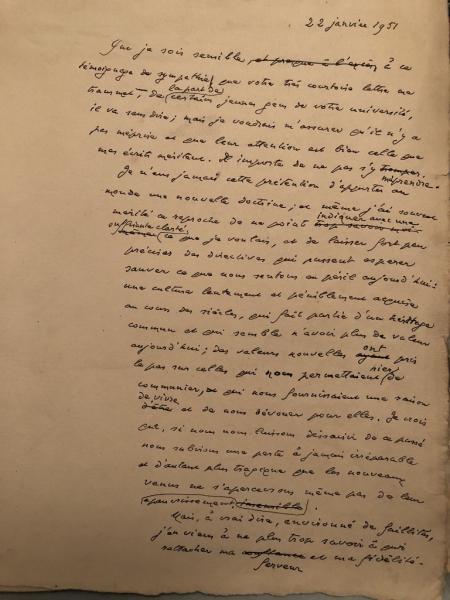 22 janvier 1951
Que je sois sensible, et presque à l'excès à ce
témoignage de sympathie que votre très courtoise lettre me
transmet, de la part de certains jeunes gens de votre université,
il va sans dire; mais je voudrais m'assurer qu'il n'y a
pas méprise et que leur attention est bien celle que
mes écrits méritent. Il importe de ne pas s'y tromper. méprendre.
Je n'eus jamais cette prétention d'apporter au
monde une nouvelle doctrine; et même j'ai souvent
mérité ce reproche de ne point trop savoir indiquer avec une
suffisante clarté, ce que je voulais, et de laisser fort peu
précises des directives qui pussent espérer
sauver ce que nous sentons en péril aujourd'hui:
une culture lentement et péniblement acquise
au cours des siècles, qui fait partie d'un héritage
commun et qui semble n'avoir plus de valeur
aujourd'hui; des valeurs nouvelles ayant ont pris
le pas sur celles qui nous permettaient de
communier, et qui nous fournissaient une raison
d'être de vivre et de nous dévouer pour elles. Je crois
que, si nous nous laissons dessaisir de ce passé
nous subissons une perte à jamais irréparable
et d'autant plus tragique que les nouveaux
venus ne s'apercevront même pas de leur
appauvrissement, insensible.
Mais, à vrai dire, environné de faillites,
j'en viens à ne plus trop savoir à qui
rattacher ma confiance et ma fidélité.
ferveur